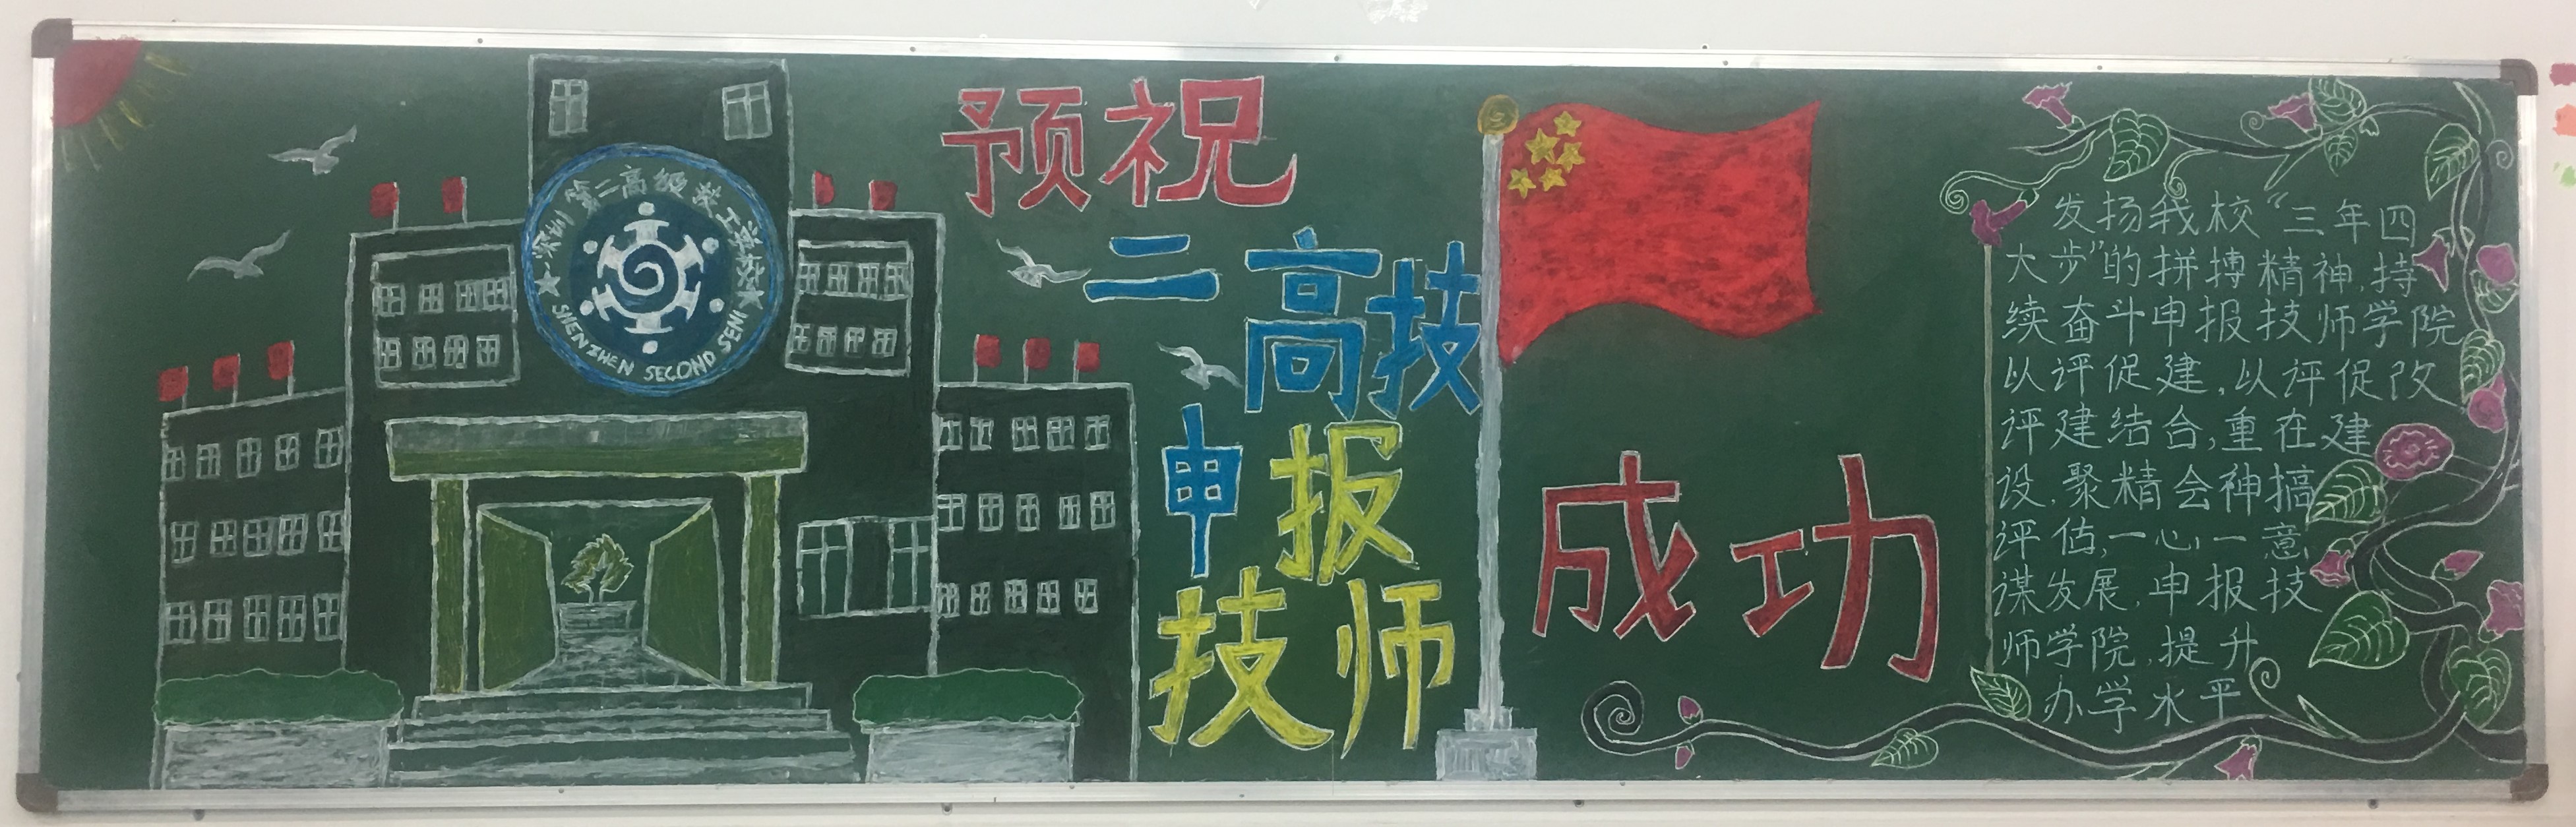 深圳第二高级技工学校
SHENZHEN SECOND SENI
预祝
二高技
申报
技师
成功
发扬我校“三年四
大步”的拼搏精神,持
续奋斗申报技师学院
以评促建,以评促改
评建结合,重在建
设,聚精会神搞
评估,一心一意
谋发展,申报技
师学院,提升
办学水平